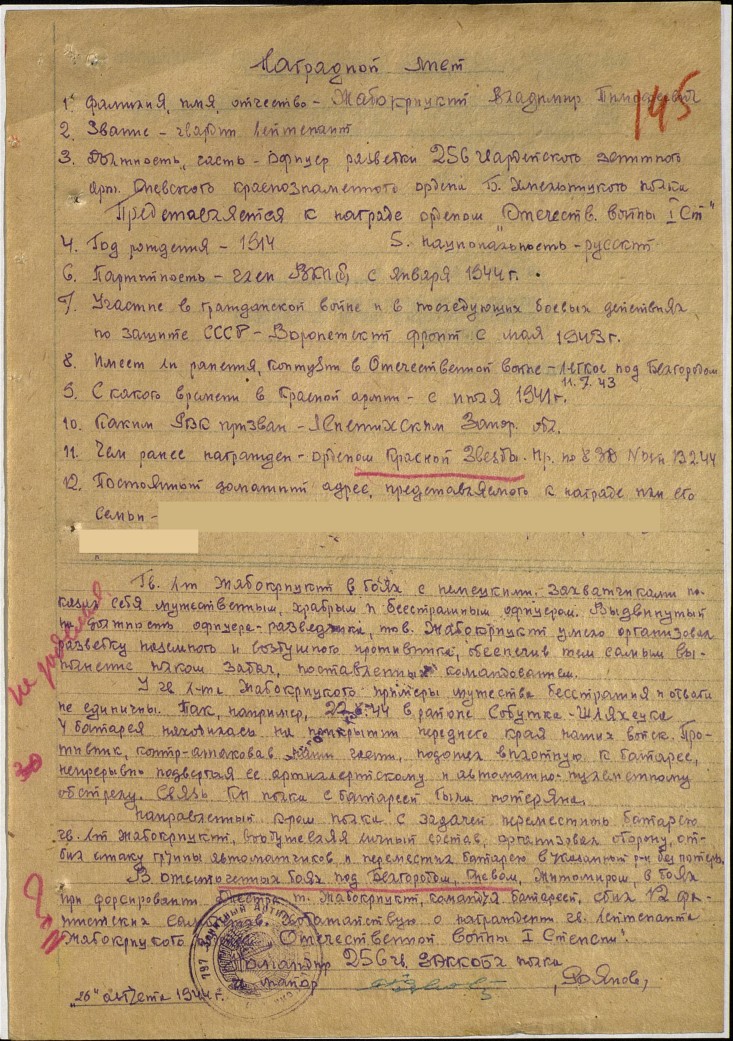 Наградной лист
195
1. Фамилия, имя, отчество - Жабокрицкий Владимир Тимофеевич
2. Звание - гвардии лейтенант
3. Должность, часть - Офицер разведки 256 гвардейского зенитного
арт. Киевского краснознаменного ордена Б. Хмельницкого полка
Представляется к награде орденом "Отечеств. войны I Ст"
4. Год рождения - 1914 5. национальность - русский
6. Партийность - член ВКП(б) с января 1944 г.
7. Участие в гражданской войне и в последующих боевых действиях
по защите СССР - Воронежский фронт с мая 1943 г.
8. Имеет ли ранения, контузии в Отечественной войне - легкое под Белгородом
11.7.43
9. С какого времени в Красной армии - с июля 1941 г.
10. Каким РВК призван - Лепетихским Запор. обл.
11. Чем ранее награжден - орденом Красной Звезды. Пр. по 8 ЗД 13.2.44
12. Постоянный домашний адрес, представляемого к награде или его
семьи -
Гв. л-т Жабокрицкий в боях с немецкими захватчиками по-
казал себя мужественным, храбрым и бесстрашным офицером. Выдвинутый
на должность офицера-разведчика, тов. Жабокрицкий умело организовал
разведку наземного и воздушного противника, обеспечив тем самым вы-
полнение полком задач, поставленных командованием.
У гв. л-та Жабокрицкого примеры мужества бесстрашия и отваги
не единичны. Так, например, 22.8.44 в районе Собутка-Шляхецка
4 батарея находилась на прикрытии переднего края наших войск. Про-
тивник, контр-атаковав наши части, подошел вплотную к батарее,
непрерывно подвергая ее артиллерийскому и автоматно-пулеметному
обстрелу. Связь КП полка с батареей была потеряна.
Направленный ком полка с задачей переместить батарею
гв. л-т Жабокрицкий, воодушевляя личный состав, организовал оборону, от-
бил атаку группы автоматчиков и переместил батарею в указанный р-н без потерь.
В ожесточенных боях под Белгородом, Киевом, Житомиром, в боях
при форсировании Днестра т. Жабокрицкий, командуя батареей, сбил 12 фа-
шистских самолетов. Ходатайствую о награждении гв. лейтенанта
Жабокрицкого Отечественной войны I Степени".
Командир 256 гв. ЗАККОБХ полка
гв. майор
"26" августа 1944 г.